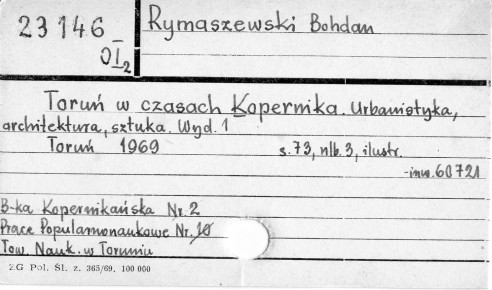 23146
OI₂
Rymaszewski Bohdan
Toruń w czasach Kopernika. Urbanistyka,
architektura, sztuka. Wyd. 1
Toruń 1969 s. 73, nlb. 3, ilustr.
-inw. 60721
B-ka Kopernikańska Nr. 2
Prace Popularnonaukowe Nr. 10
Tow. Nauk. w Toruniu
ZG Pol. Śl. z. 365/69. 100 000